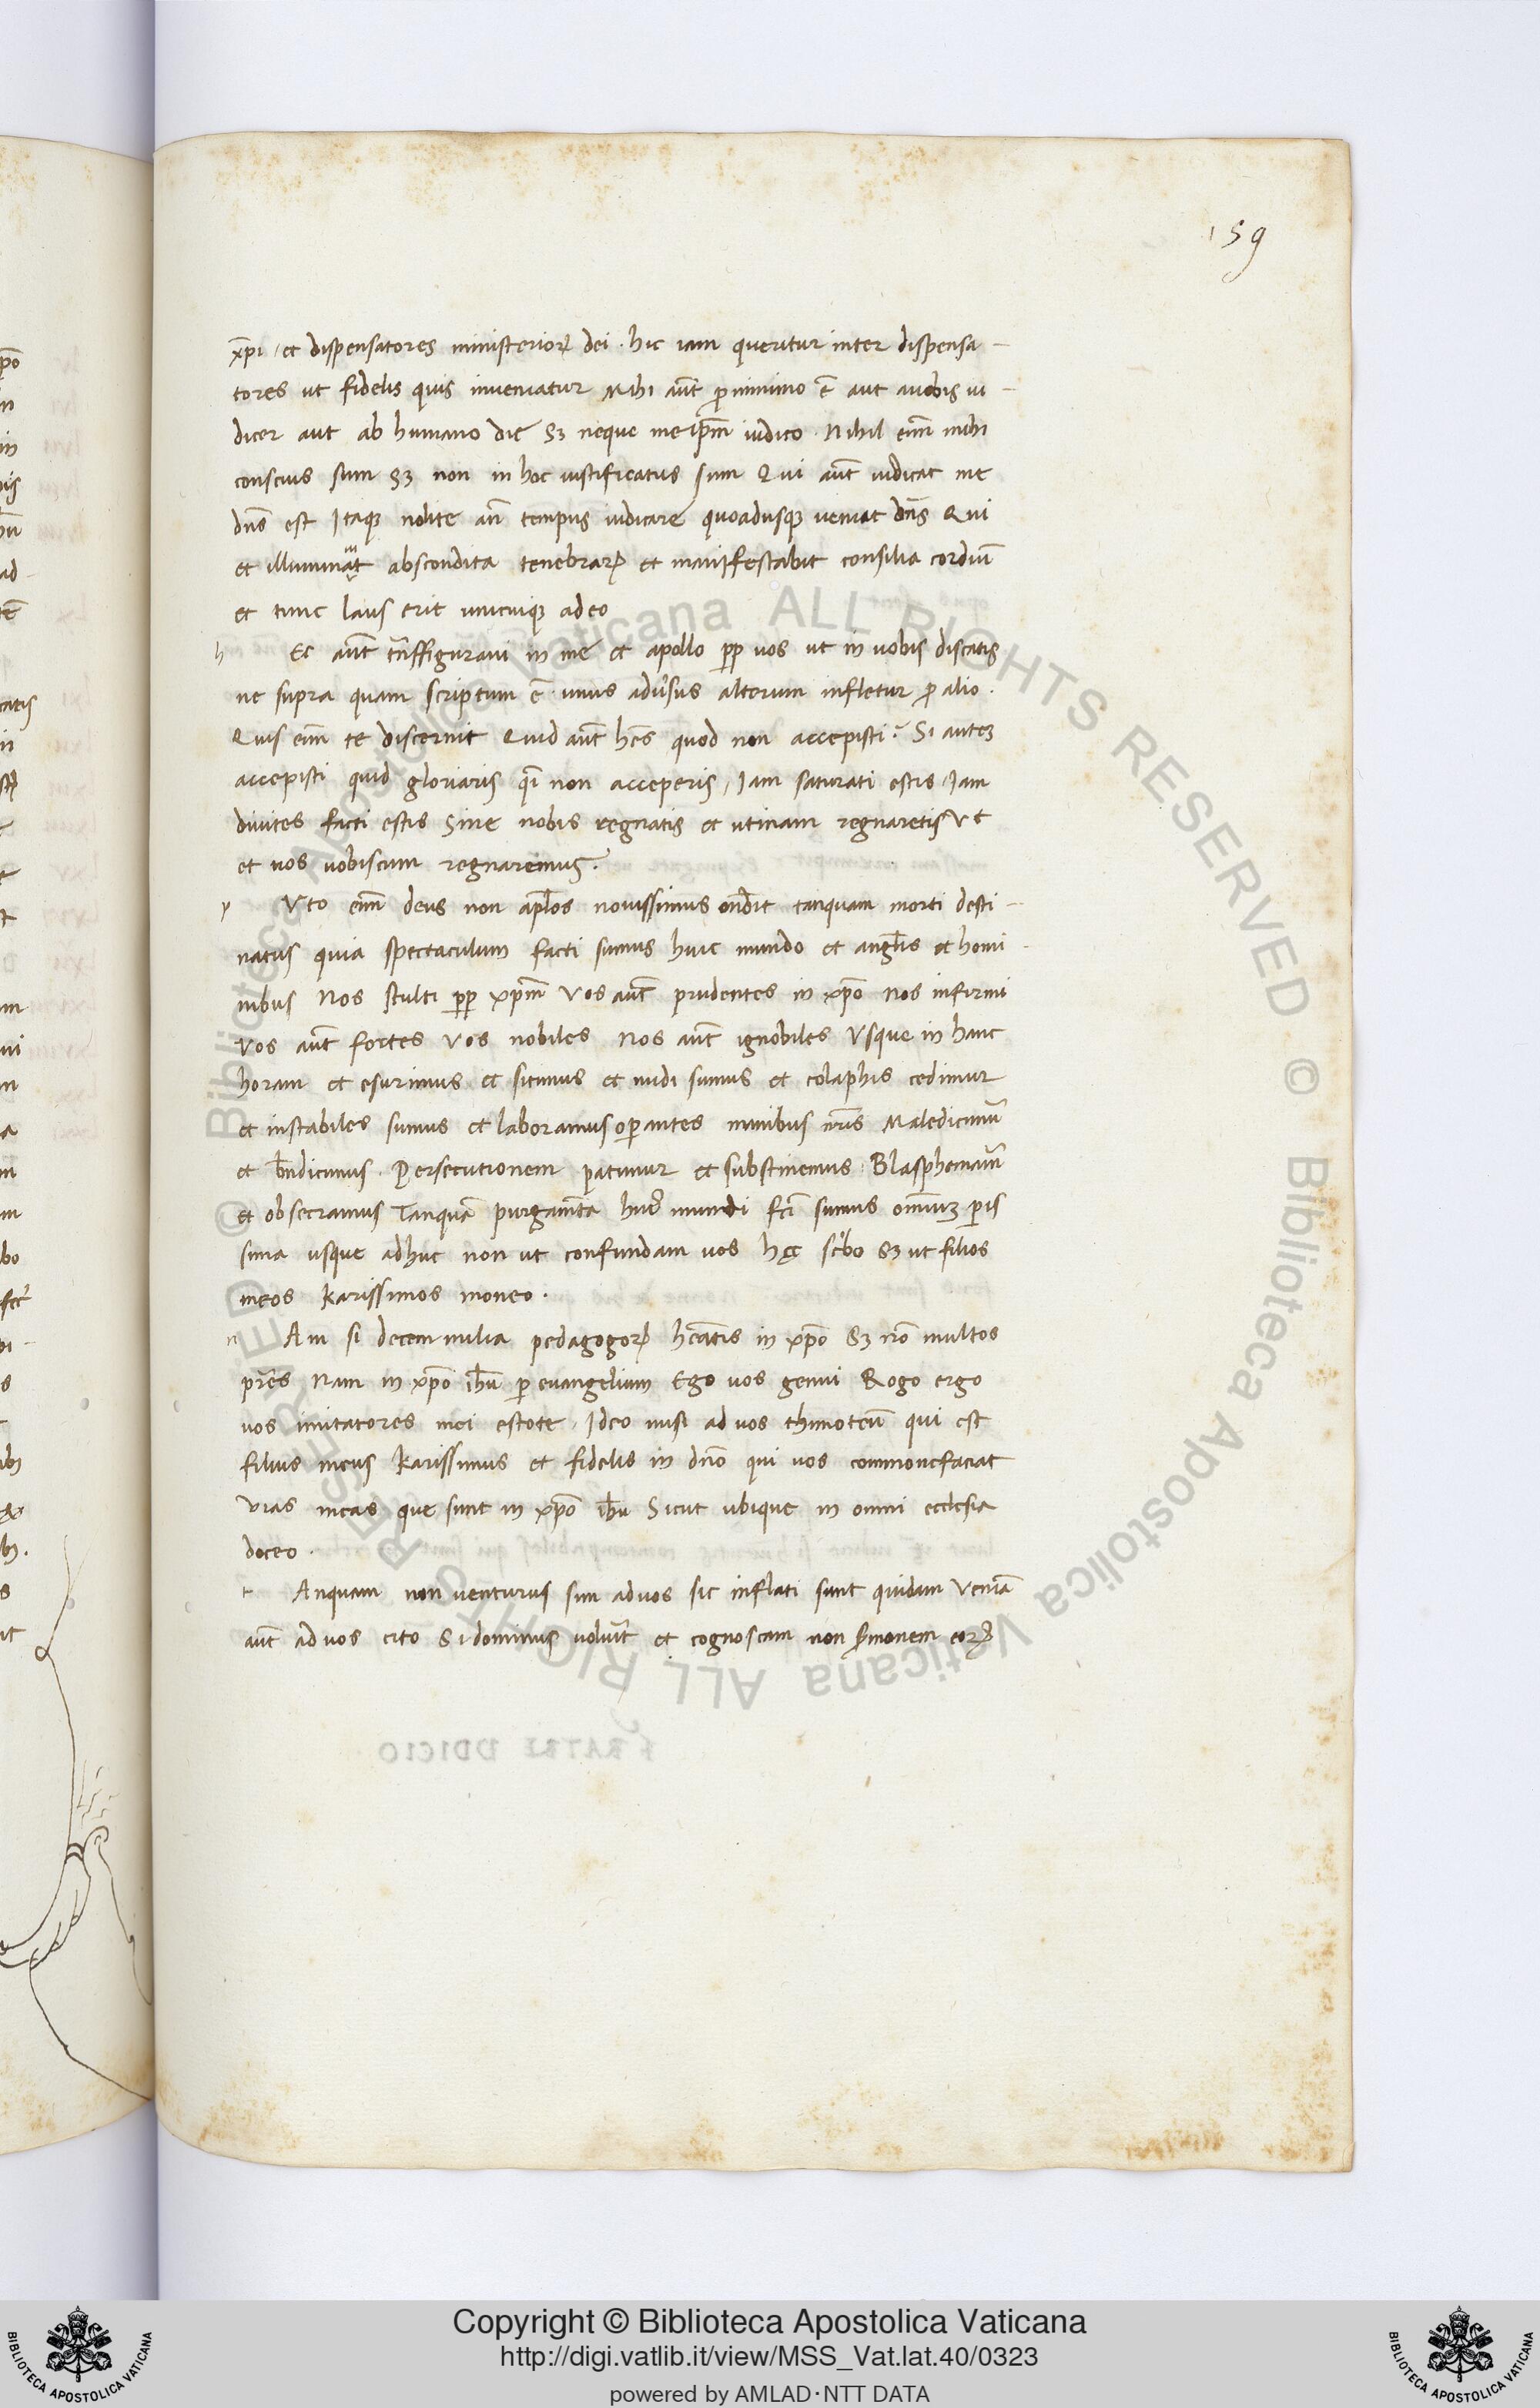 159
xp̄i / et dispensatores ministerioꝝ dei . hic iam queritur inter dispensa -
tores ut fidelis quis inveniatur Mihi aūt ꝓ minimo ē aut avobis iu -
dicer aut ab humano die Sꝫ neque me ip̄m iudico . Nihil eīm mihi
conscius sum Sꝫ non in hoc iustificatus sum Qui aūt iudicat me
dn̄s est Itaqꝫ nolite an̄ tempus iudicare quoadusqꝫ veniat dn̄s Qui
et illuminat abscondita tenebraꝝ et manifestabit consilia cordiū
et tunc laus erit unicuiqꝫ adeo
h Ec aūt tr̄nsfiguravi in me et apollo ꝓp vos ut in vobis discatis
ne supra quam scriptum ē unus adv̄sus alterum infletur ꝓ alio .
Quis eīm te discernit Quid aūt hēs quod non accepisti ? Si autꝫ
accepisti quid gloriaris qī non acceperis / Iam saturati estis / Iam
divites facti estis Sine nobis regnatis et utinam regnaretis Vt
et nos vobiscum regnaremus .
p Vto eīm deus non apl̄os novissimus on̄dit tanquam morti desti -
natus quia spectaculum facti sumus huic mundo et angl̄is et homi -
nibus Nos stulti ꝓp xp̄m Vos aūt prudentes in xp̄o Nos infirmi
Vos aūt fortes Vos nobiles Nos aūt ignobiles Vsque in hanc
horam et esurimus et sitimus et nudi sumus et colaphis cedimur
et instabiles sumus et laboramus oꝑantes manibus nr̄is Maledicimū
et bn̄dicimus . Persecutionem patimur et substinemus . Blasphemam̄
et obsecramus Tanquā purgam̄ta hui' mundi fc̄i sumus omniuꝫ ꝑis
sima usque adhuc non ut confundam vos hęc sc̄bo Sꝫ ut filios
meos karissimos moneo .
n Am si decem milia pedagogoꝝ hēatis in xp̄o Sꝫ nō multos
pr̄es Nam in xp̄o ih̄u ꝑ euangelium Ego vos genui Rogo ergo
vos imitatores mei estote . Ideo misi ad vos thimoteū qui est
filius meus karissimus et fidelis in dn̄o qui vos commonefaciat
vias meas que sunt in xp̄o ih̄u Sicut ubique in omni ecclesia
doceo .
t Anquam non venturus sim ad vos sic inflati sunt quidam Veniā
aūt ad vos cito Si dominus volūit et cognoscam non s̄monem eoꝝ
Copyright © Biblioteca Apostolica Vaticana
http://digi.vatlib.it/view/MSS_Vat.lat.40/0323
powered by AMLAD·NTT DATA
BIBLIOTECA APOSTOLICA VATICANA
BIBLIOTECA APOSTOLICA VATICANA
© Biblioteca Apostolica Vaticana ALL RIGHTS RESERVED © Biblioteca Apostolica Vaticana ALL RIGHTS RESERVED